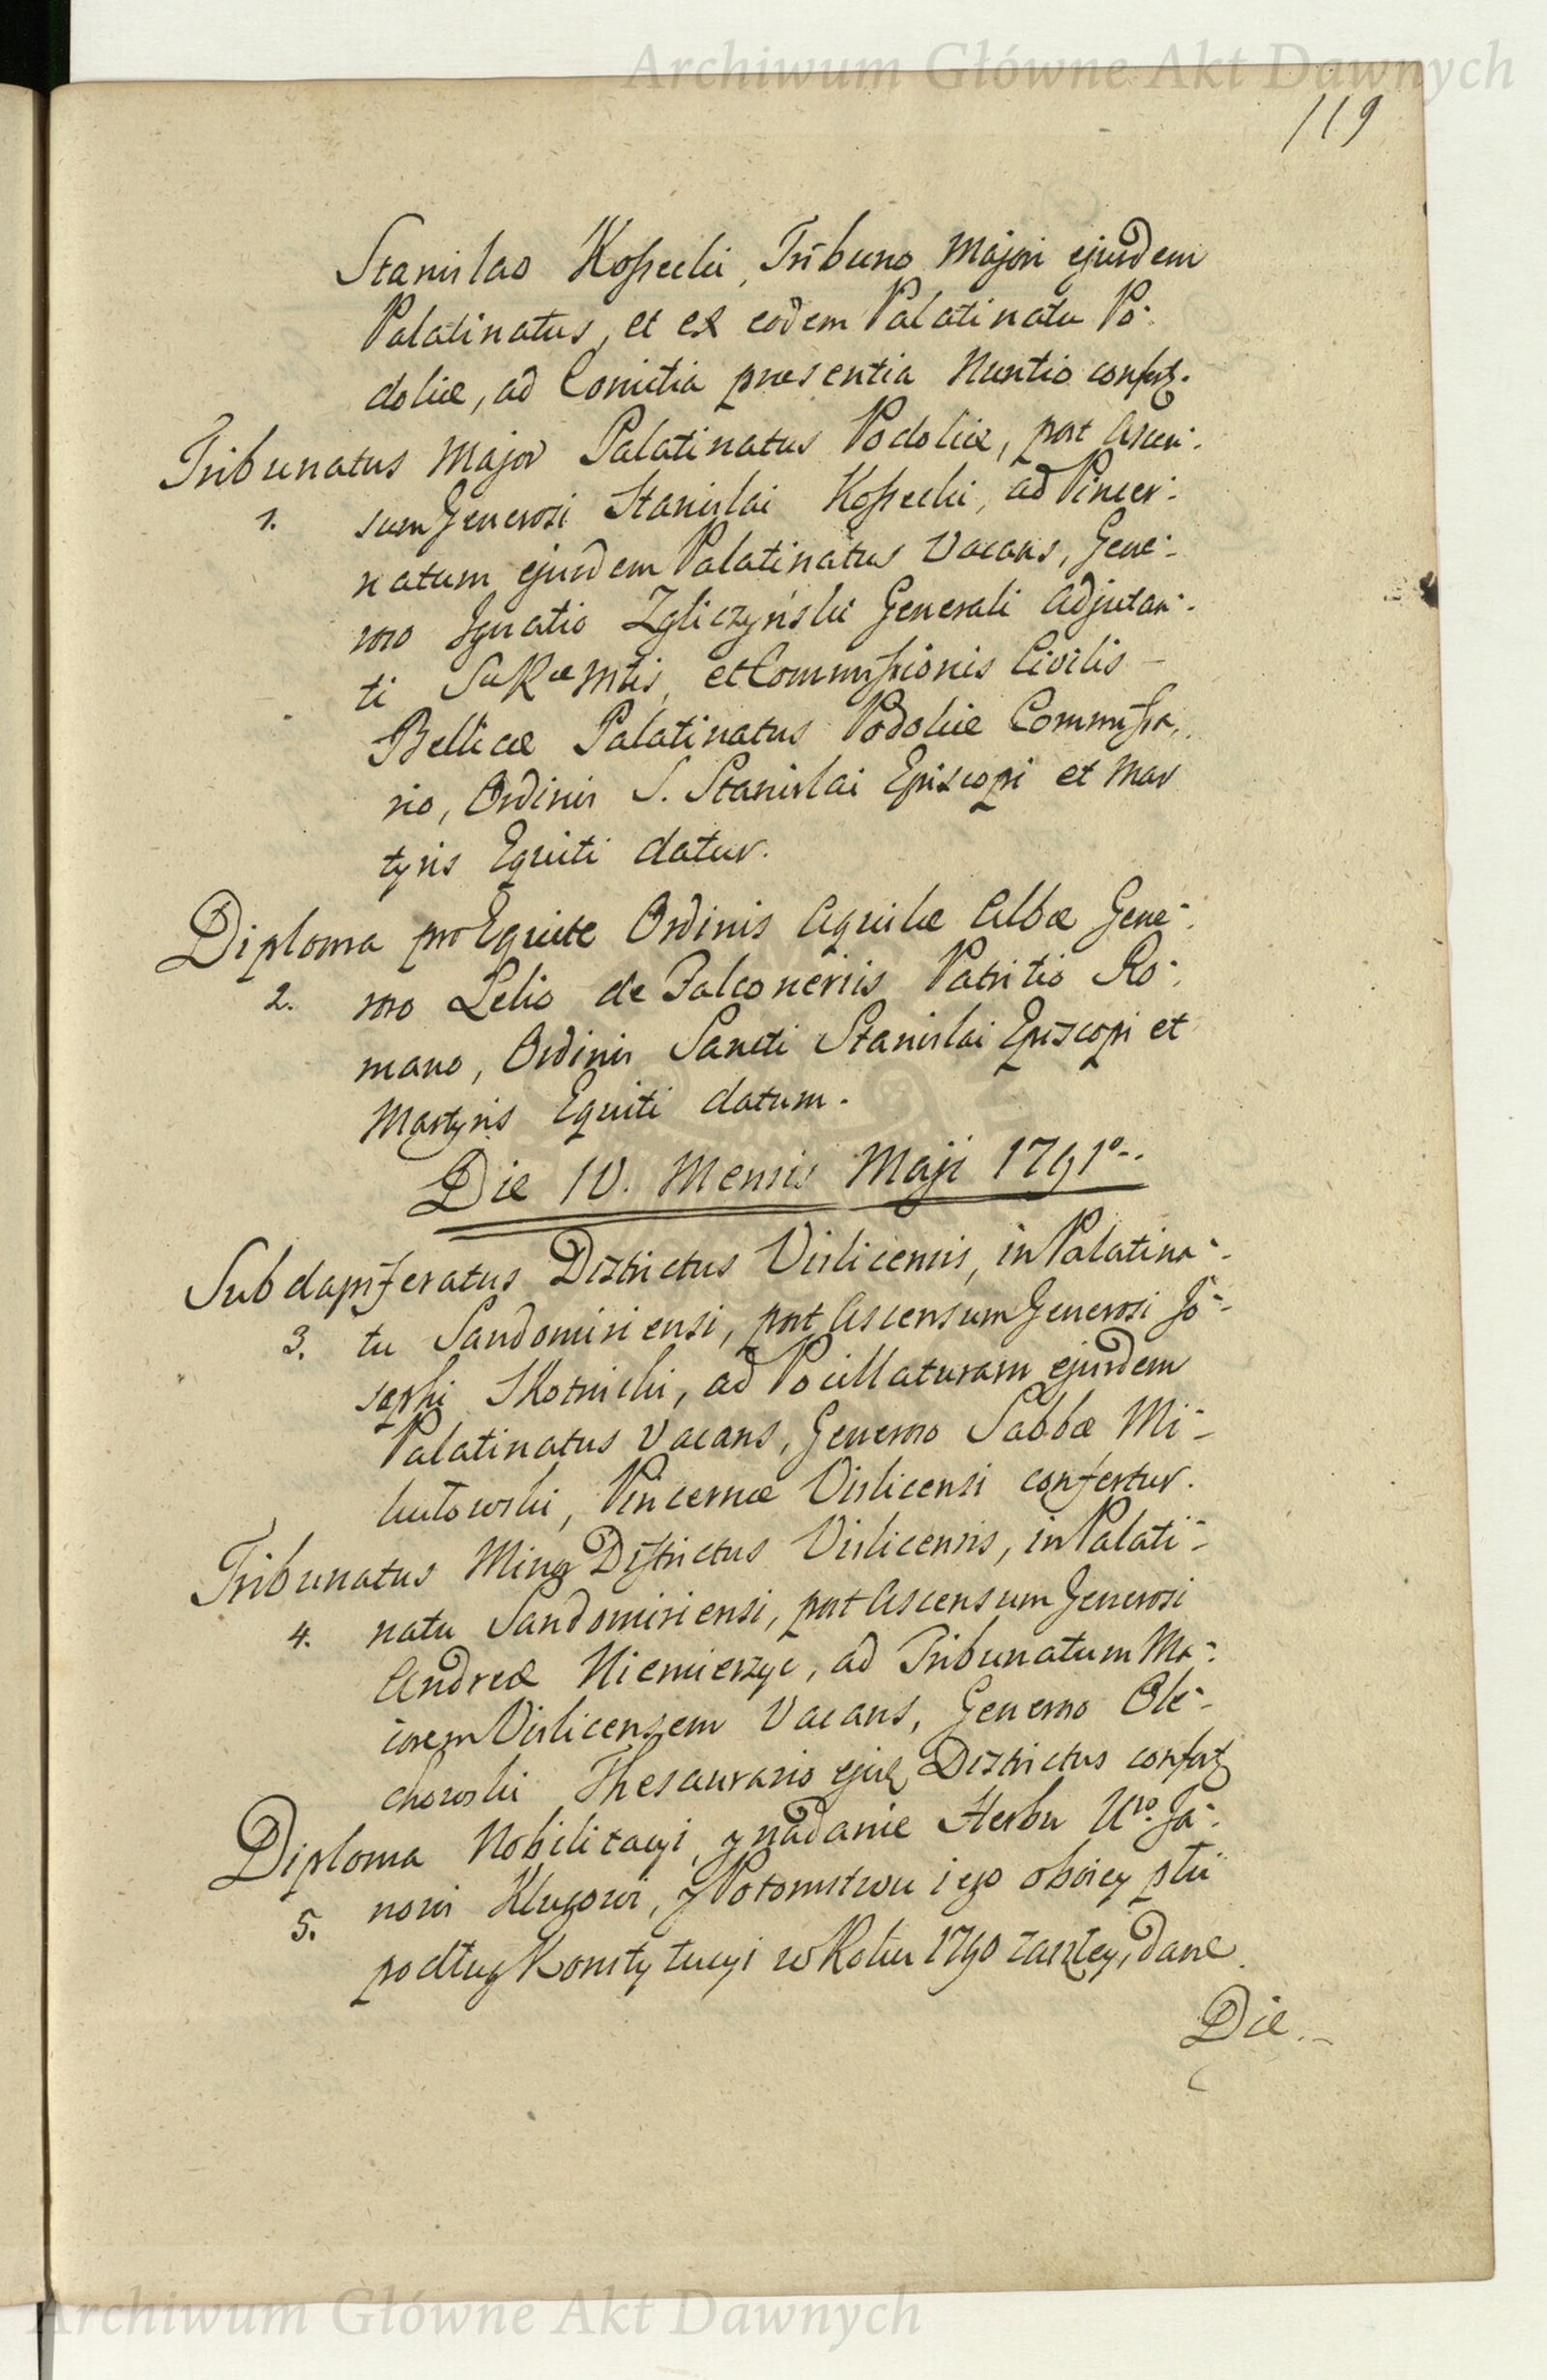 Archiwum Główne Akt Dawnych
119
Stanislao Kossecki, Tribuno Majori ejusdem
Palatinatus, et ex eodem Palatinatu Po-
doliæ, ad Comitia præsentia Nuntio confert.
Tribunatus Major Palatinatus Podoliæ, post Ascen-
1. sum Generosi Stanislai Kossecki, ad Pincer-
natum ejusdem Palatinatus Vacans, Gene-
roso Ignatio Zgliczyński Generali Adjutan-
ti SæRæMtis, et Commissionis Civilis -
Bellicæ Palatinatus Podoliæ Commissa-
rio, Ordinis S. Stanislai Episcopi et Mar
tyris Equiti datur.
Diploma pro Equite Ordinis Aquilæ Albæ Gene-
2. roso Lelio de Falconeriis Patritio Ro-
mano, Ordinis Sancti Stanislai Episcopi et
Martyris Equiti datum.
Die 10. Mensis Maji 1791o..
Subdapiferatus Districtus Vislicensis, in Palatina-
3. tu Sandomiriensi, post Ascensum Generosi Jo-
sephi Skotnicki, ad Pocillaturam ejusdem
Palatinatus Vacans, Generoso Sabbæ Mi-
kułowski, Pincernæ Vislicensi confertur.
Tribunatus Minor Districtus Vislicensis, in Palati-
4. natu Sandomiriensi, post Ascensum Generosi
Andreæ Niemierzyc, ad Tribunatum Ma-
iorem Vislicensem Vacans, Generoso Ole-
chowski Thesaurario ejusd Districtus confert
Diploma Nobilitacyi, y nadanie Herbu Uro. Ja-
5. nowi Klugowi, y Potomstwu iego oboiey płci
podług Konstytucyi w Roku 1790 zaszłey, dane.
Die.-
Archiwum Główne Akt Dawnych